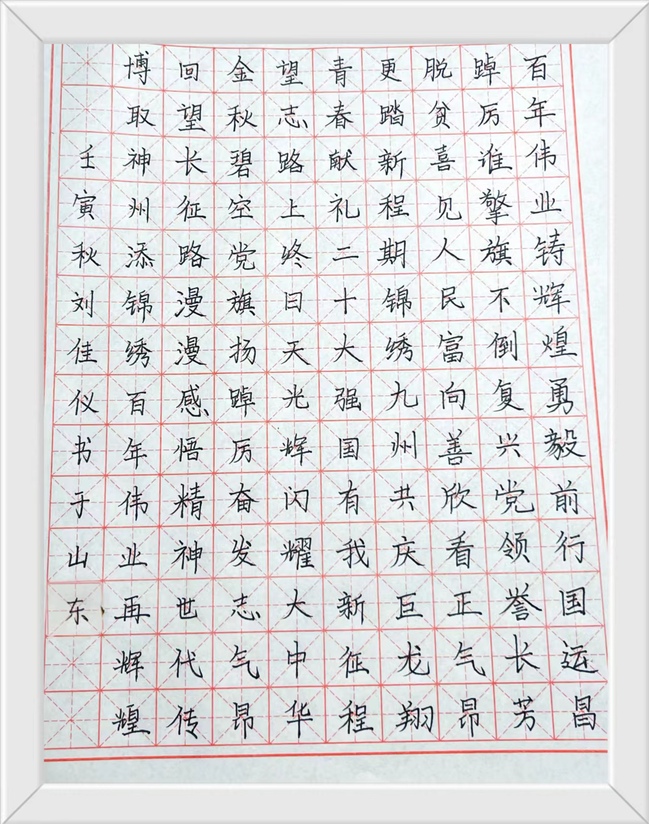 百年伟业铸辉煌勇毅前行国远昌
踔厉谁擎旗不倒复兴党领誉长芳
脱贫喜见人民富向善欣看正气昂
更踏新程期锦绣九州共庆巨龙翔
青春献礼二十大强国有我新征程
望志路上终日天光辉闪耀大中华
金秋碧空党旗扬踔厉奋发志气昂
回望长征路漫漫感悟精神世代传
博取神州添锦绣百年伟业再辉煌
壬寅秋刘佳仪书于山东